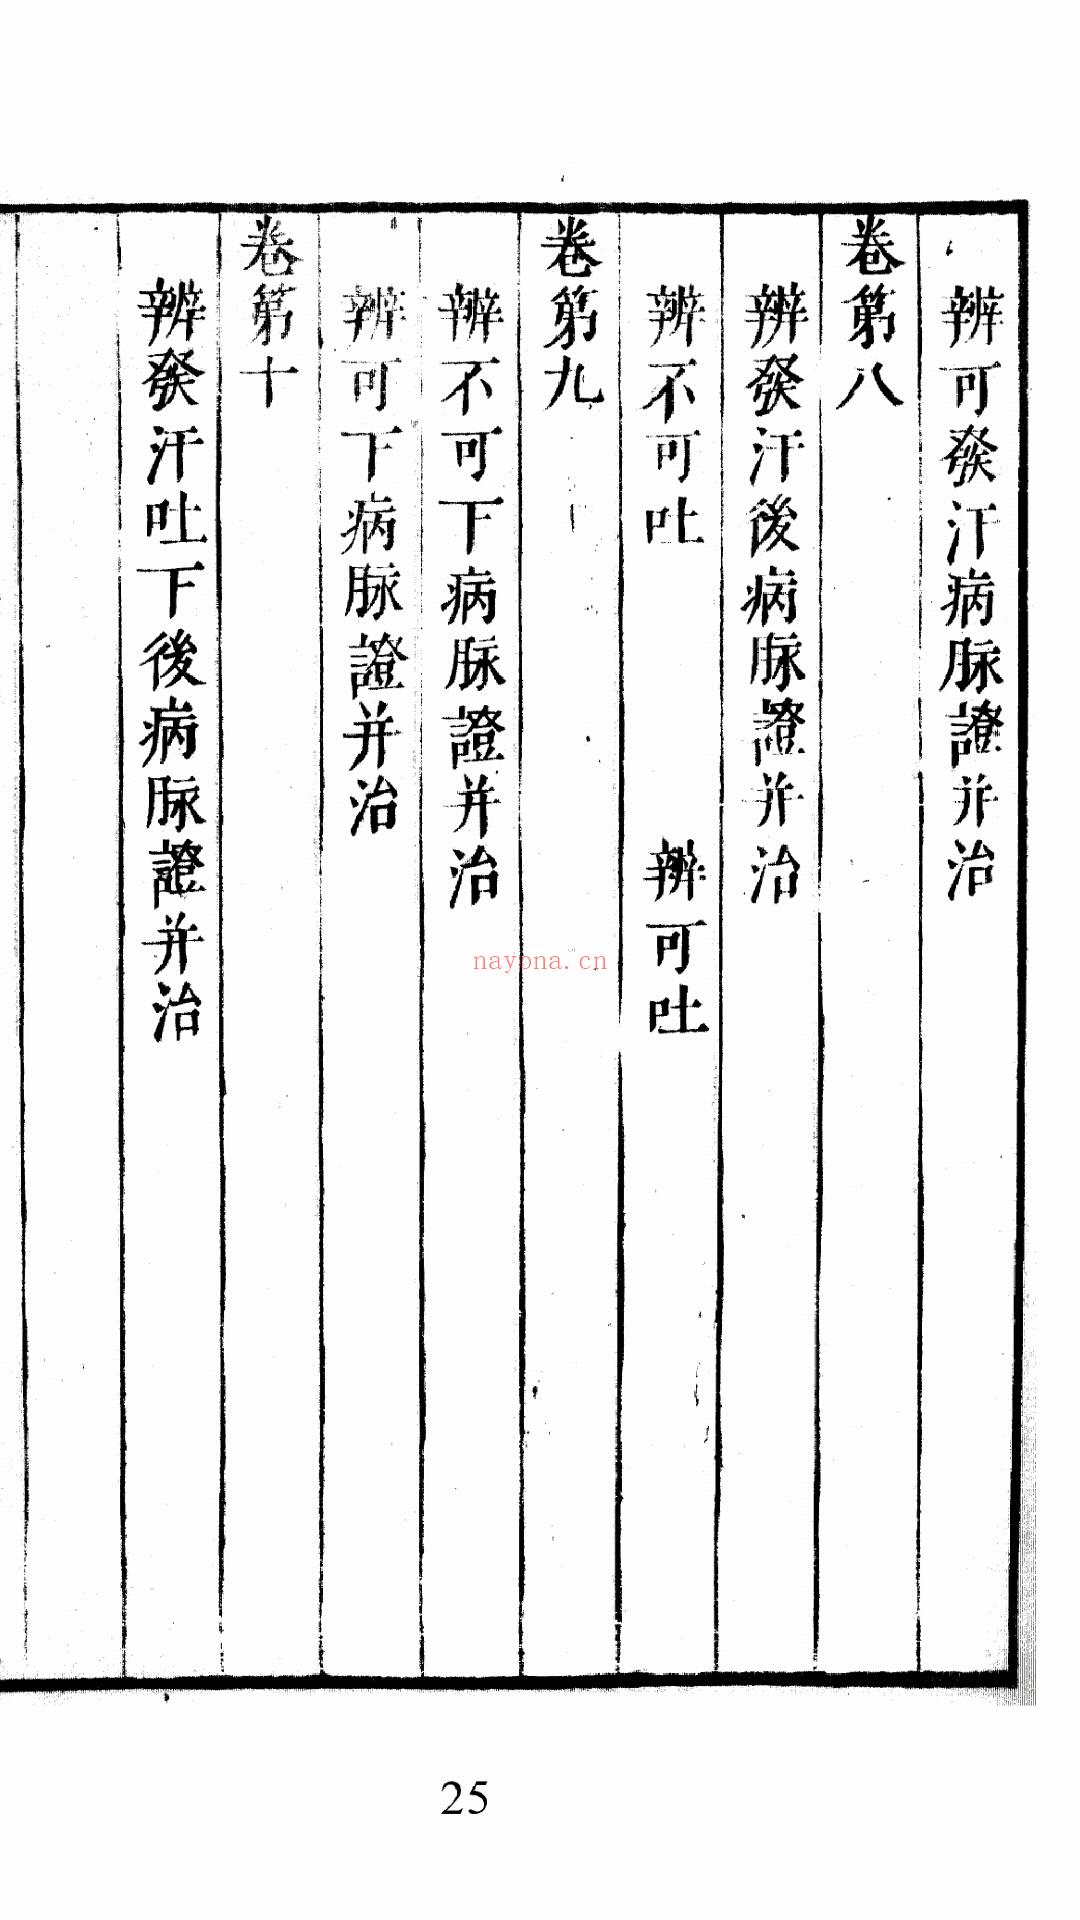 辨可發汗病脉證并治
卷第八
辨發汗後病脉證并治
辨不可吐 辨可吐
卷第九
辨不可下病脉證并治
辨可下病脉證并治
卷第十
辨發汗吐下後病脉證并治
nayona.cn
25